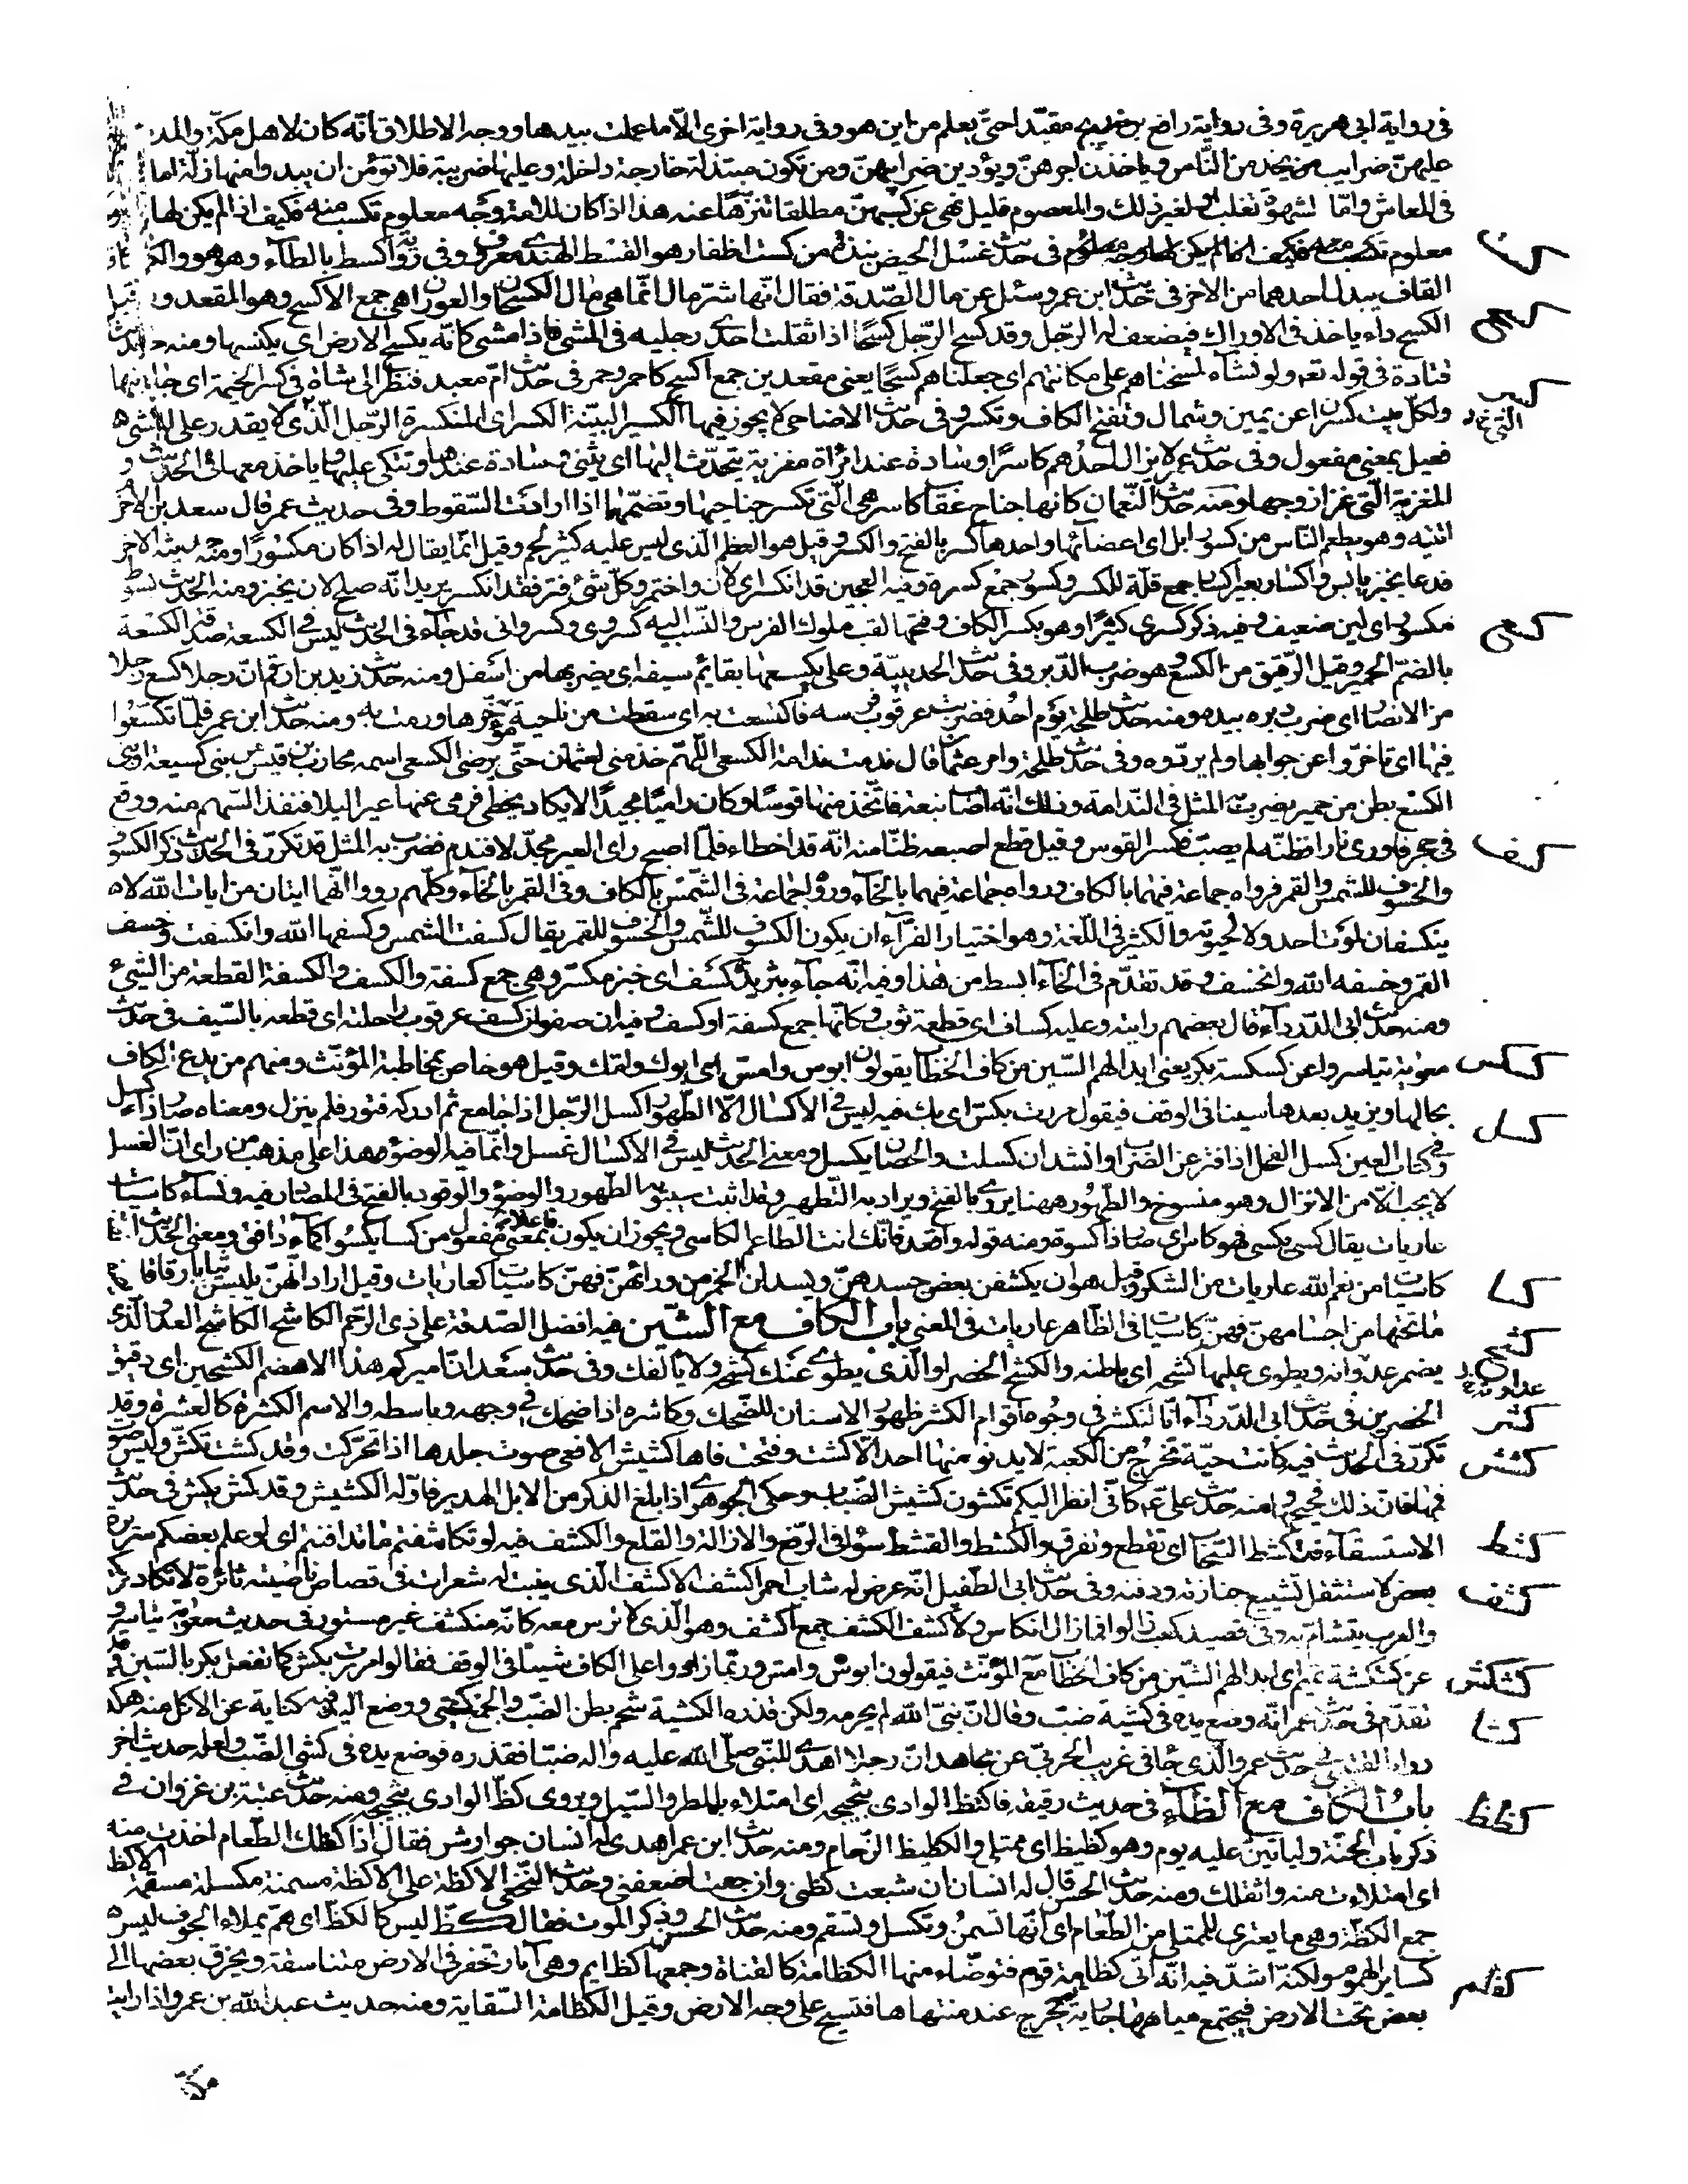 فى رواية ابى هريرة وفى رواية رافع بن خديج مقيّدا حتّى يعلم من اين هو وفى رواية اخرى الّا ما عملت بيدها ووجه الاطلاق انّه كان لاهل مكّة والمد
عليهنّ ضرايب من يخدمن النّاس وياخذن اجرهنّ ويؤدين ضرايبهنّ ومن تكون مبتذلة خارجة داخلة وعليها ضريبة فلا تؤمن ان يبدو منها زلّة امّا
فى المعاش وامّا لشهوة تغلب او لغير ذلك والمعصوم قليل نهى عن كسبهنّ مطلقا تنزّها عنه هذا اذا كان للامة وجه معلوم تكسب منه فكيف اذا لم يكن لها
معلوم فى حديث غسل الحيض نبذة من كست اظفار هو القسط الهندى معروف وفى رواية كسط بالطّاء وهو هو والكاف
القاف يبدل احدهما من الاخر فى حديث ابن عمر وسئل عن مال الصّدقة فقال انّها شرّ مال انّما هى مال الكسحان والعوران هى جمع الاكسح وهو المقعد وقيل
الكسح داء ياخذ فى الاوراك فيضعف له الرّجل وقد كسح الرّجل كسحًا اذا ثقلت احدى رجليه فى المشى فاذا مشى كانّه يكسح الارض اى يكنسها ومنه حديث
قتادة فى قوله تعه ولو نشاء لمسخناهم على مكانتهم اى جعلناهم كسحًا يعنى مقعدين جمع اكسح كاحمر وحمر فى حديث امّ معبد فنظر الى شاة فى كسر الخيمة اى جانبها
ولكلّ بيت كسران عن يمين وشمال وتفتح الكاف وتكسر وفى حديث الاضاحى لا يجوز فيها الكسير البيّنة الكسر اى المنكسرة الرّجل الّذى لا يقدر على المشى
فعيل بمعنى مفعول وفى حديث عمر لا يزال احدهم كاسرًا وسادة عند امرأة مغزية يتحدّث اليها اى يثنى وسادة عندها ويتّكى عليها وياخذ معها فى الحديث و
المغزية الّتى غزا زوجها ومنه حديث النّعمان كانها جناح عقاب كاسر هى الّتى تكسر جناحيها وتضمّهما اذا ارادت السّقوط وفى حديث عمر قال سعد بن الاخر
اتيته وهو يطعم النّاس من كسور ابل اى اعضائها واحدها كسر بالفتح والكسر وقيل هو العظم الّذى ليس عليه كثير لحم وقيل انّما يقال له اذا كان مكسورًا ومنه حديثه الاخر
فدعا بخبز يابس واكسار بعير اكسار جمع قلّة للكسر وكسور جمع كسرة وفيه العجين قد انكسر اى لان واختمر وكلّ شئ فتر فقد انكسر يريد انّه صلح لان يخبز ومنه الحديث لسوط
مكسور اى لين ضعيف وفيه ذكر كسرى كثيرًا وهو بكسر الكاف وفتحها لقب ملوك الفرس والنّسب اليه كسروى وكسروانى قد جاء فى الحديث ليس فى الكسعة صدقة الكسعة
بالضمّ الحمير وقيل الرّقيق من الكسع وهو ضرب الدّبر وفى حديث الحديبيّة وعلى يكسعها بقائم سيفه اى يضربها من اسفل ومنه حديث زيد بن ارقم انّ رجلا كسع رجلا
من الانصار اى ضرب دبره بيده ومنه حديث طلحة يوم احد فضربت عرقوب فرسه فاكتسعت به اى سقطت من ناحية مؤخرها ورمت به ومنه حديث ابن عمر فلمّا تكسّعوا
فيها اى تاخرّوا عن جوابها ولم يردّوه وفى حديث طلحة وامر عثمان قال ندمت ندامة الكسعى اللّهمّ خذ منى لعثمان حتّى يرضى الكسعى اسمه محارب بن قيس من بنى كسيعة او بنى
الكسع بطن من حمير يضرب به المثل فى النّدامة وذلك انّه اصاب نبعة فاتّخذ منها قوسًا وكان راميًا مجيدًا لا يكاد يخطى فرمى عنها عيرا ليلا فنفذ السّهم منه ووقع
فى حجر فاورى نارا فظنّه لم يصب فكسر القوس وقيل قطع اصبعه ظنّا منه انّه قد اخطاء فلمّا اصبح راى العير مجدّلا فندم فضرب به المثل قد تكرّر فى الحديث ذكر الكسوف
والخسوف للشّمس والقمر فرواه جماعة فيهما بالكاف ورواه جماعة فيهما بالخاء ورواه جماعة فى الشّمس بالكاف وفى القمر بالخاء وكلّهم رووا انّهما ايتان من ايات الله لا
ينكسفان لموت احد ولا لحيوته والكثير فى اللّغة وهو اختيار الفرّاء ان يكون الكسوف للشّمس والخسوف للقمر يقال كسفت الشّمس وكسفها الله وانكسفت وخسف
القمر وخسفه الله وانخسف وقد تقدّم فى الخاء ابسط من هذا وفيه انّه جاء بثريدة كسف اى خبز مكسّر وهى جمع كسفة والكسف والكسفة القطعة من الشّيئ
ومنه حديث ابى الدّرداء قال بعضهم رايته وعليه كساف اى قطعة ثوب وكانّها جمع كسفة او كسف وفيه ان صفوان كسف عرقوب راحلته اى قطعه بالسّيف فى حديث
معوية تياسروا عن كسكسة بكر يعنى ابدالهم السّين من كاف الخطاب يقولون ابوس وامّس اى ابوك وامّك وقيل هو خاص بمخاطبة المؤنّث ومنهم من يدع الكاف
بحالها ويزيد بعدها سينا فى الوقف فيقول مررت بكس اى بك فيه ليس فى الاكسال الّا الطّهور اكسل الرّجل اذا جامع ثمّ ادركه فتور فلم ينزل ومعناه صار ذا كسل
وفى كتاب العين كسل الفحل اذا فتر عن الضّراب وانشد ان كسلت والحصان يكسل ومعنى الحديث ليس فى الاكسال غسل وانّما فيه الوضؤ وهذا على مذهب من راى انّ الغسل
لا يجب الّا من الانزال وهو منسوخ والطّهور ههنا يروى بالفتح ويراد به التّطهير وقد اثبت سيبويه الطّهور والوضؤ والوقود بالفتح فى المصادر فيه ونساء كاسيات
عاريات يقال كسى يكسى فهو كاس اى صار ذا كسوة ومنه قوله واقعد فانّك انت الطاعم الكاسى ويجوز ان يكون فاعلا بمعنى مفعول من كسا يكسوا كماء دافق ومعنى الحديث انّها
كاسيات من نعم الله عاريات من الشكر وقيل هو ان يكشفن بعض جسدهنّ ويسدلن الخمر من ورائهنّ فهنّ كاسيات كعاريات وقيل اراد انّهنّ يلبسن ثيابا رقاقا
ما تحتها من اجسامهنّ فهنّ كاسيات فى الظّاهر عاريات فى المعنى باب الكاف مع الشين فيه افضل الصّدقة على ذى الرّحم الكاشح الكاشح العدوّ الّذى
يضمر عدوانه ويطوى عليها كشحه اى باطنه والكشح الخصر او الّذى يطوى عنك كشحه ولا يألفك وفى حديث سعد انّ اميركم هذا لاهضم الكشحين اى دقيق
الخصرين فى حديث ابى الدّرداء انّا لنكشر فى وجوه اقوام الكشر ظهور الاسنان للضّحك وكاشره اذا ضحك فى وجهه وباسطه والاسم الكشرة كالعشرة وقد
تكرّر فى الحديث فيه كانت حيّة تخرج من الكعبة لا يدنو منها احد الّا كشت وفتحت فاها كشيش الافعى صوت جلدها اذا تحرّكت وقد كشت تكشّ وليس صوت
فمها فان ذلك فحيح ومنه حديث علىّ عه كانّى انظر اليكم تكشون كشيش الضّباب وحكى الجوهرى اذا بلغ الذكر من الابل الهدير فاوّله الكشيش وقد كش يكش فى حديث
الاستسقاء فتكشط السّحاب اى تقطع وتفرق والكشط والقشط سواء فى الرّفع والازالة والقلع والكشف فيه لو تكاشفتم ما تدافنتم اى لو علم بعضكم سريرة
بعض لاستثقل تشييع جنازته ودفنه وفى حديث ابى الطّفيل انّه عرض له شاب احمر اكشف الاكشف الّذى ينبت له شعرات فى قصاص ناصيته ثائرة لا تكاد
والعرب يتشاءم به وفى قصيد كعب زالوا فما زال انكاس ولا كشف الكشف جمع اكشف وهو الّذى لا ترس معه كانّه منكشف غير مستور فى حديث معوية تياسروا
عن كشكشة تميم اى ابدالهم الشّين من كاف الخطاب مع المؤنّث فيقولون ابوش وامّش وربّما زادوا على الكاف شينًا فى الوقف فقالوا مررت بكش كما تفعل بكر بالسّين وقد
تقدّم فى حديث عمر انّه وضع يده فى كشية ضب وقال انّ نبىّ الله لم يحرمه ولكن قذره الكشية شحم بطن الضبّ والجمع كشى ووضع اليد فيه كناية عن الاكل منه هكذا
رواه القتيبى فى حديث عمر والّذى جا فى غريب الحربىّ عن مجاهد انّ رجلا اهدى للنّبى صلّى الله عليه واله ضبّا فقذره فوضع يده فى كشى الضّب ولعلّه حديث اخر
باب الكاف مع الظآء فى حديث رقيقة فاكتظ الوادى بثجيجه اى امتلاء بالمطر والسّيل ويروى كظّ الوادى بثجيجه ومنه حديث عتبة بن غزوان فى
ذكر باب الجنّة ولياتينّ عليه يوم وهو كظيظ اى ممتلئ والكظيظ الزّحام ومنه حديث ابن عمر اهدى له انسان جوارش فقال اذا كظك الطّعام اخذت منه
اى امتلاءت منه واثقلك ومنه حديث الحسن قال له انسان ان شبعت كظنى وان جعت اضعفنى وحديث النّخعى الاكظة على الاكظة مسمنة مكسلة مسقمة الاكظة
جمع الكظّة وهى ما يعترى للممتلى من الطّعام اى انّها تسمن وتكسل وتسقم ومنه حديث الحسن وذكر الموت فقال كظّ ليس كالكظّ اى همّ يملاء الجوف ليس
كساير الهموم ولكنّه اشدّ فيه انّه اتى كظامة قوم فتوضّاء منها الكظامة كالقناة وجمعها كظايم وهى آبار تحفر فى الارض متناسقة ويخرق بعضها الى
بعض تحت الارض فيجتمع مياهها جارية ثمّ يخرج عند منتهاها فتسيح على وجه الارض وقيل الكظامة السّقاية ومنه حديث عبد الله بن عمرو اذا رايت
كست
كسح
كسر
كسع
كسف
كسكس
كسل
كسا
كشح
كشر
كشش
كشط
كشف
كشكش
كشا
كظظ
كظم
مكّة